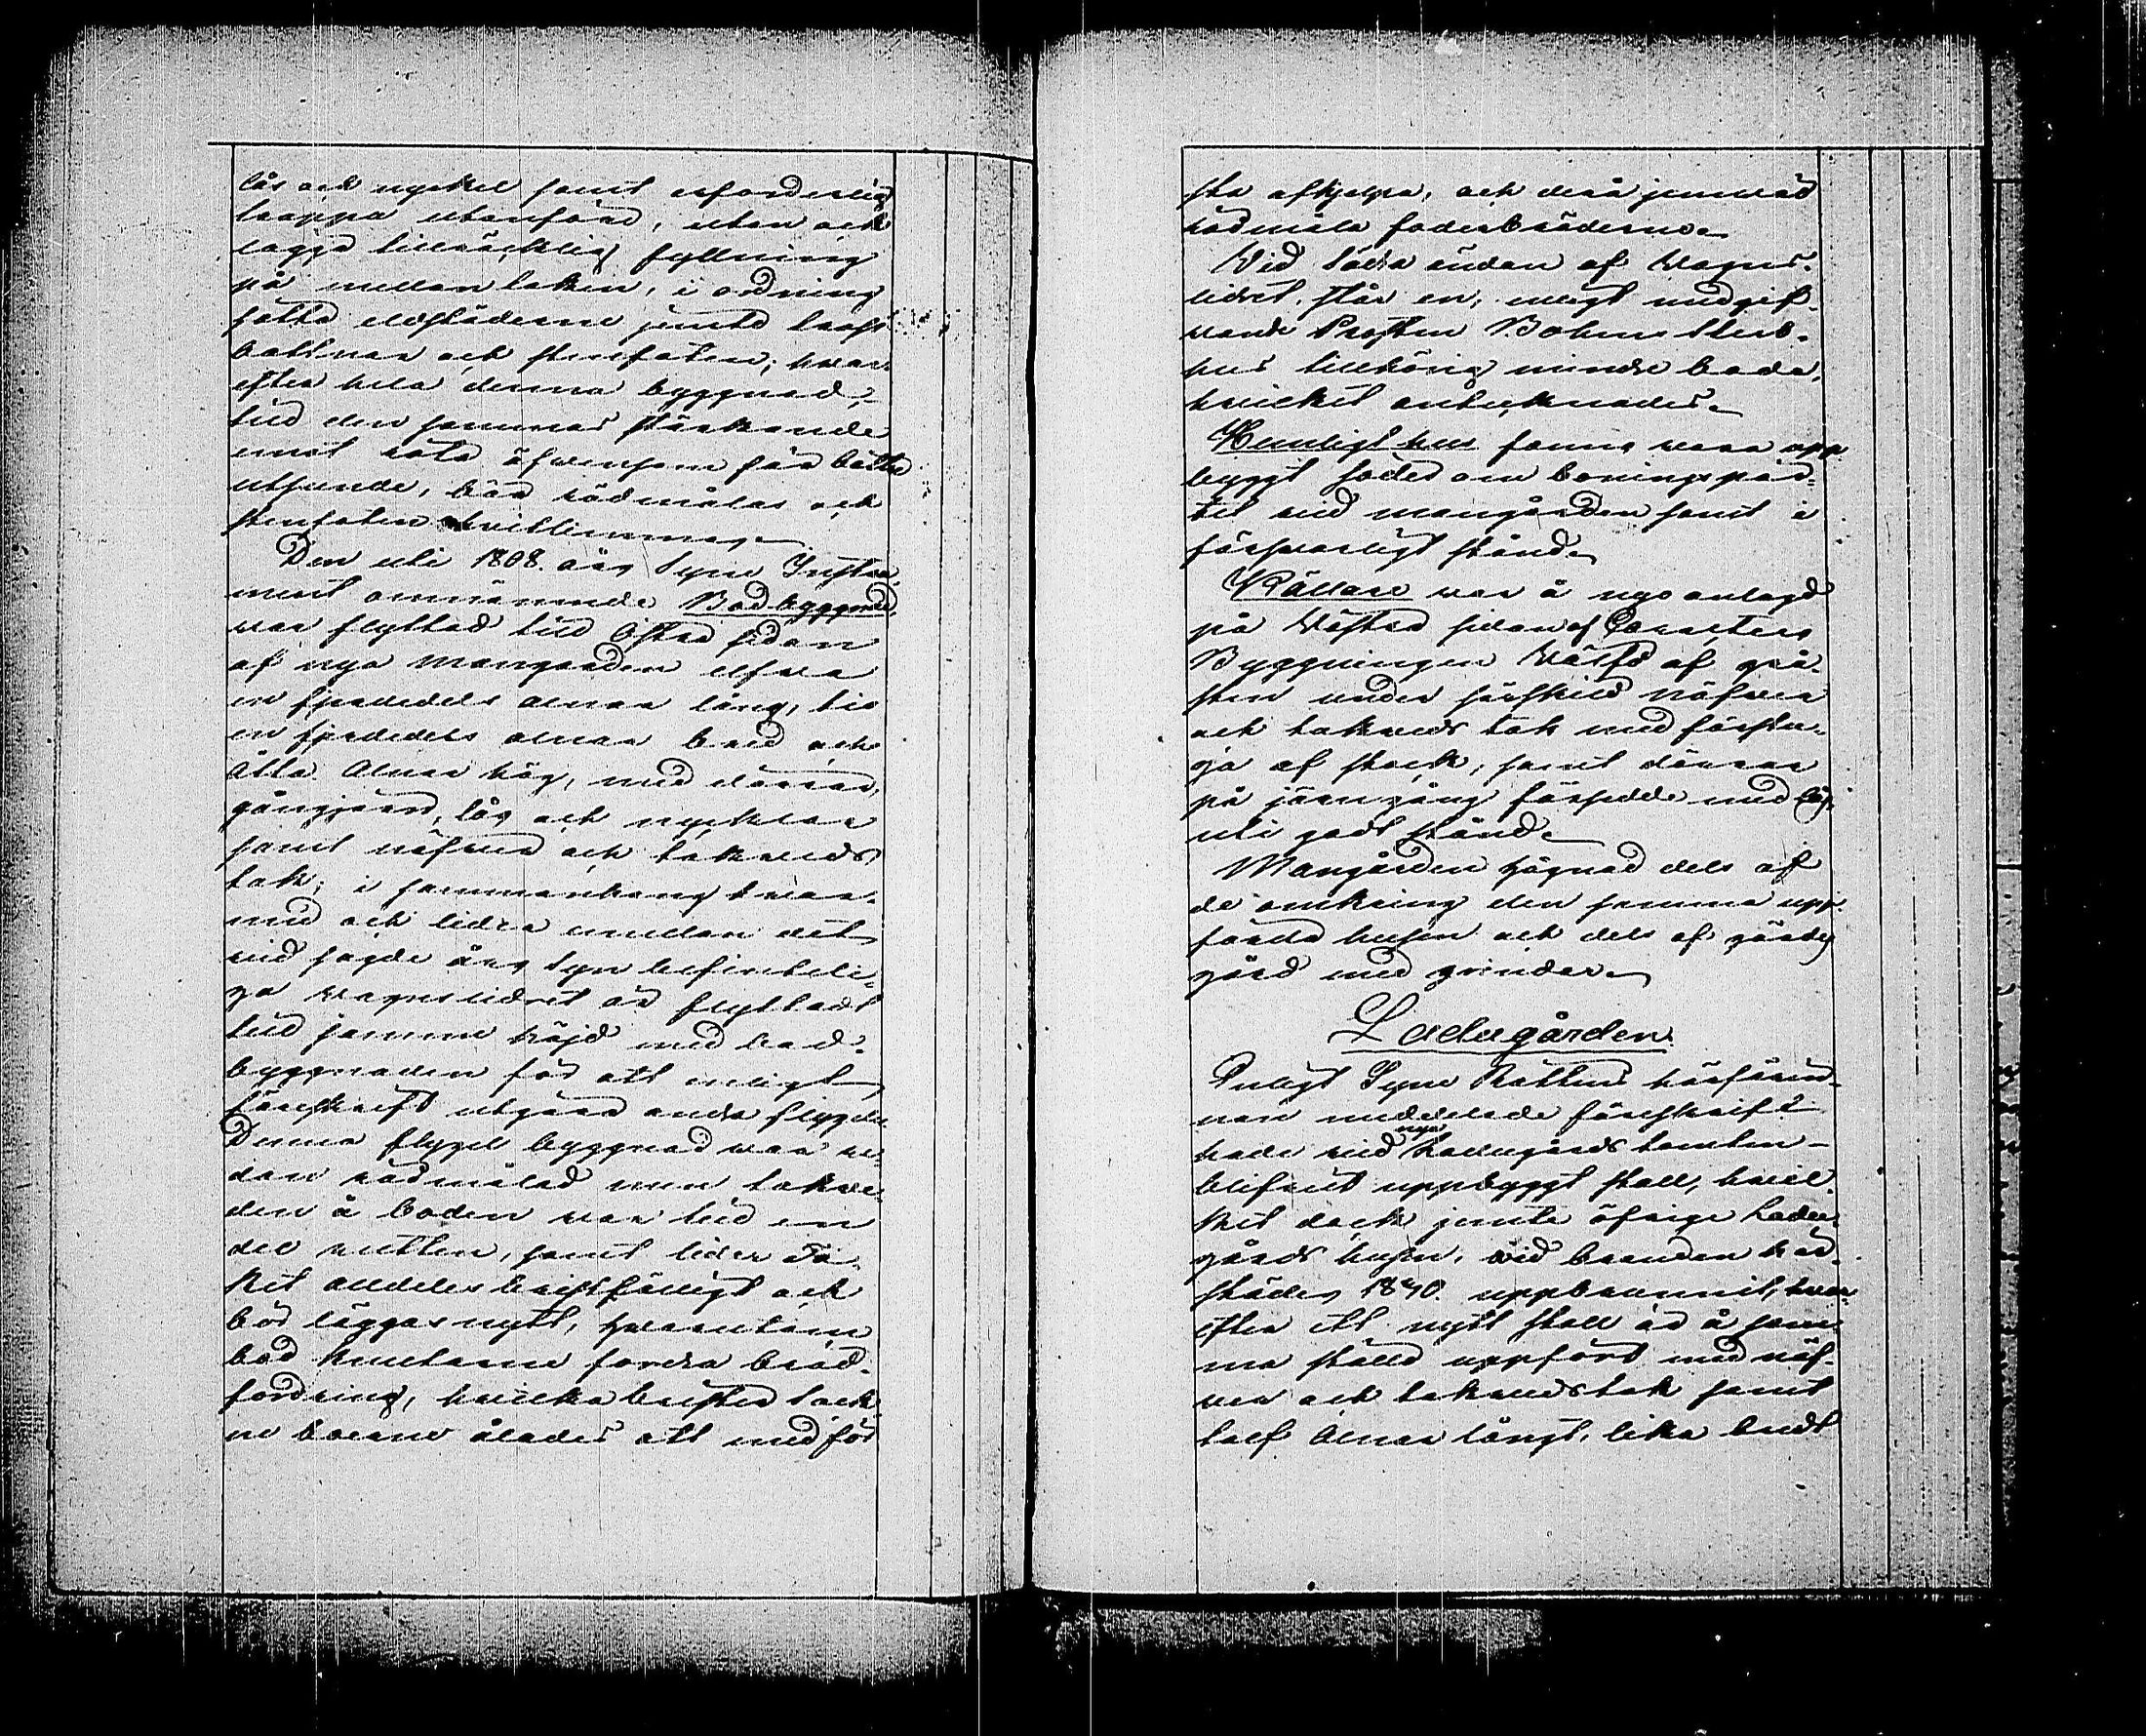 lås och nyckel samt erforderlig
trappa utanföre, utan och
lägga tillräcklig fyllning
på mellantaken, i ordning
sätta eldstäderne jemte tross
bottnar och stenfoten; hvar
efter hela denna byggnad,
till den sammas stärkande
emot röta äfvensom för bättre
utseende, bör rödmålas och
stenfoten hvitlimmas
Den uti 1808. års Syne Instru,
ment omnämnde Bodbyggnad,
var flyttad till Östra sidan
af nya mangården elfva
en fjerdedels alnar lång, tio
en fjerdedels alnar bred och
åtta alnar hög, med dörrar,
gångjern, lås och nycklar
samt näfver och takveds
tak; i sammanhang hvar-
med och lidra emellan det
vid sagde års Syn befinteli-
ga vagnslidret är flyttadt
till samma höjd med bod-
byggnaden för att enligt
föreskrift utgöra andra flygeln
Denna flygel byggnad var re-
dan rödmålad men takve-
den å boden var till en
del rutten, samt lider Ta-
ket alldeles bristfälligt och
bör läggas nytt, hvarutom
bod knutarne fordra bräd-
fordring, hvilka brister sock-
ne boerne ålades att medför
sta afhjelpa, och deså jemväl
rödmåla foderbräderne
Vid södra ändan af Vagns-
lidret, står en, enligt uppgift
varande Prosten Bohms sterb-
hus tillhörig mindre bod,
hvilket antecknades.
Hemligt hus fanns vara upp-
byggt söder om boningspör-
tet vid mangården samt i
försvarligt stånd
Källare var å nyo anlagd
på Västra sidan af Caracters
Byggningen Välfd af grå-
sten under särskild näfver
och takveds tak med förstu-
ga af stock, samt dörrar
på järn gång försedde med lås
uti godt stånd.
Mangården hägnad dels af
de omkring den samma upp-
förda husen och dels af gärdes
gård med grindar.
Ladugården.
Enligt Syne Rättens härförin-
nan meddelade föreskrift
hade vid nya Ladugårds tomten
blifvit uppbyggt stall, hvil-
ket dock jemte öfrige Ladu-
gårds husen, vid branden här-
städes 1840. uppbrunnit, hvar-
efter ett nytt stall är å sam-
ma ställe uppfört med näf-
ver och takvedstak samt
tolf alnar långt, lika bredt